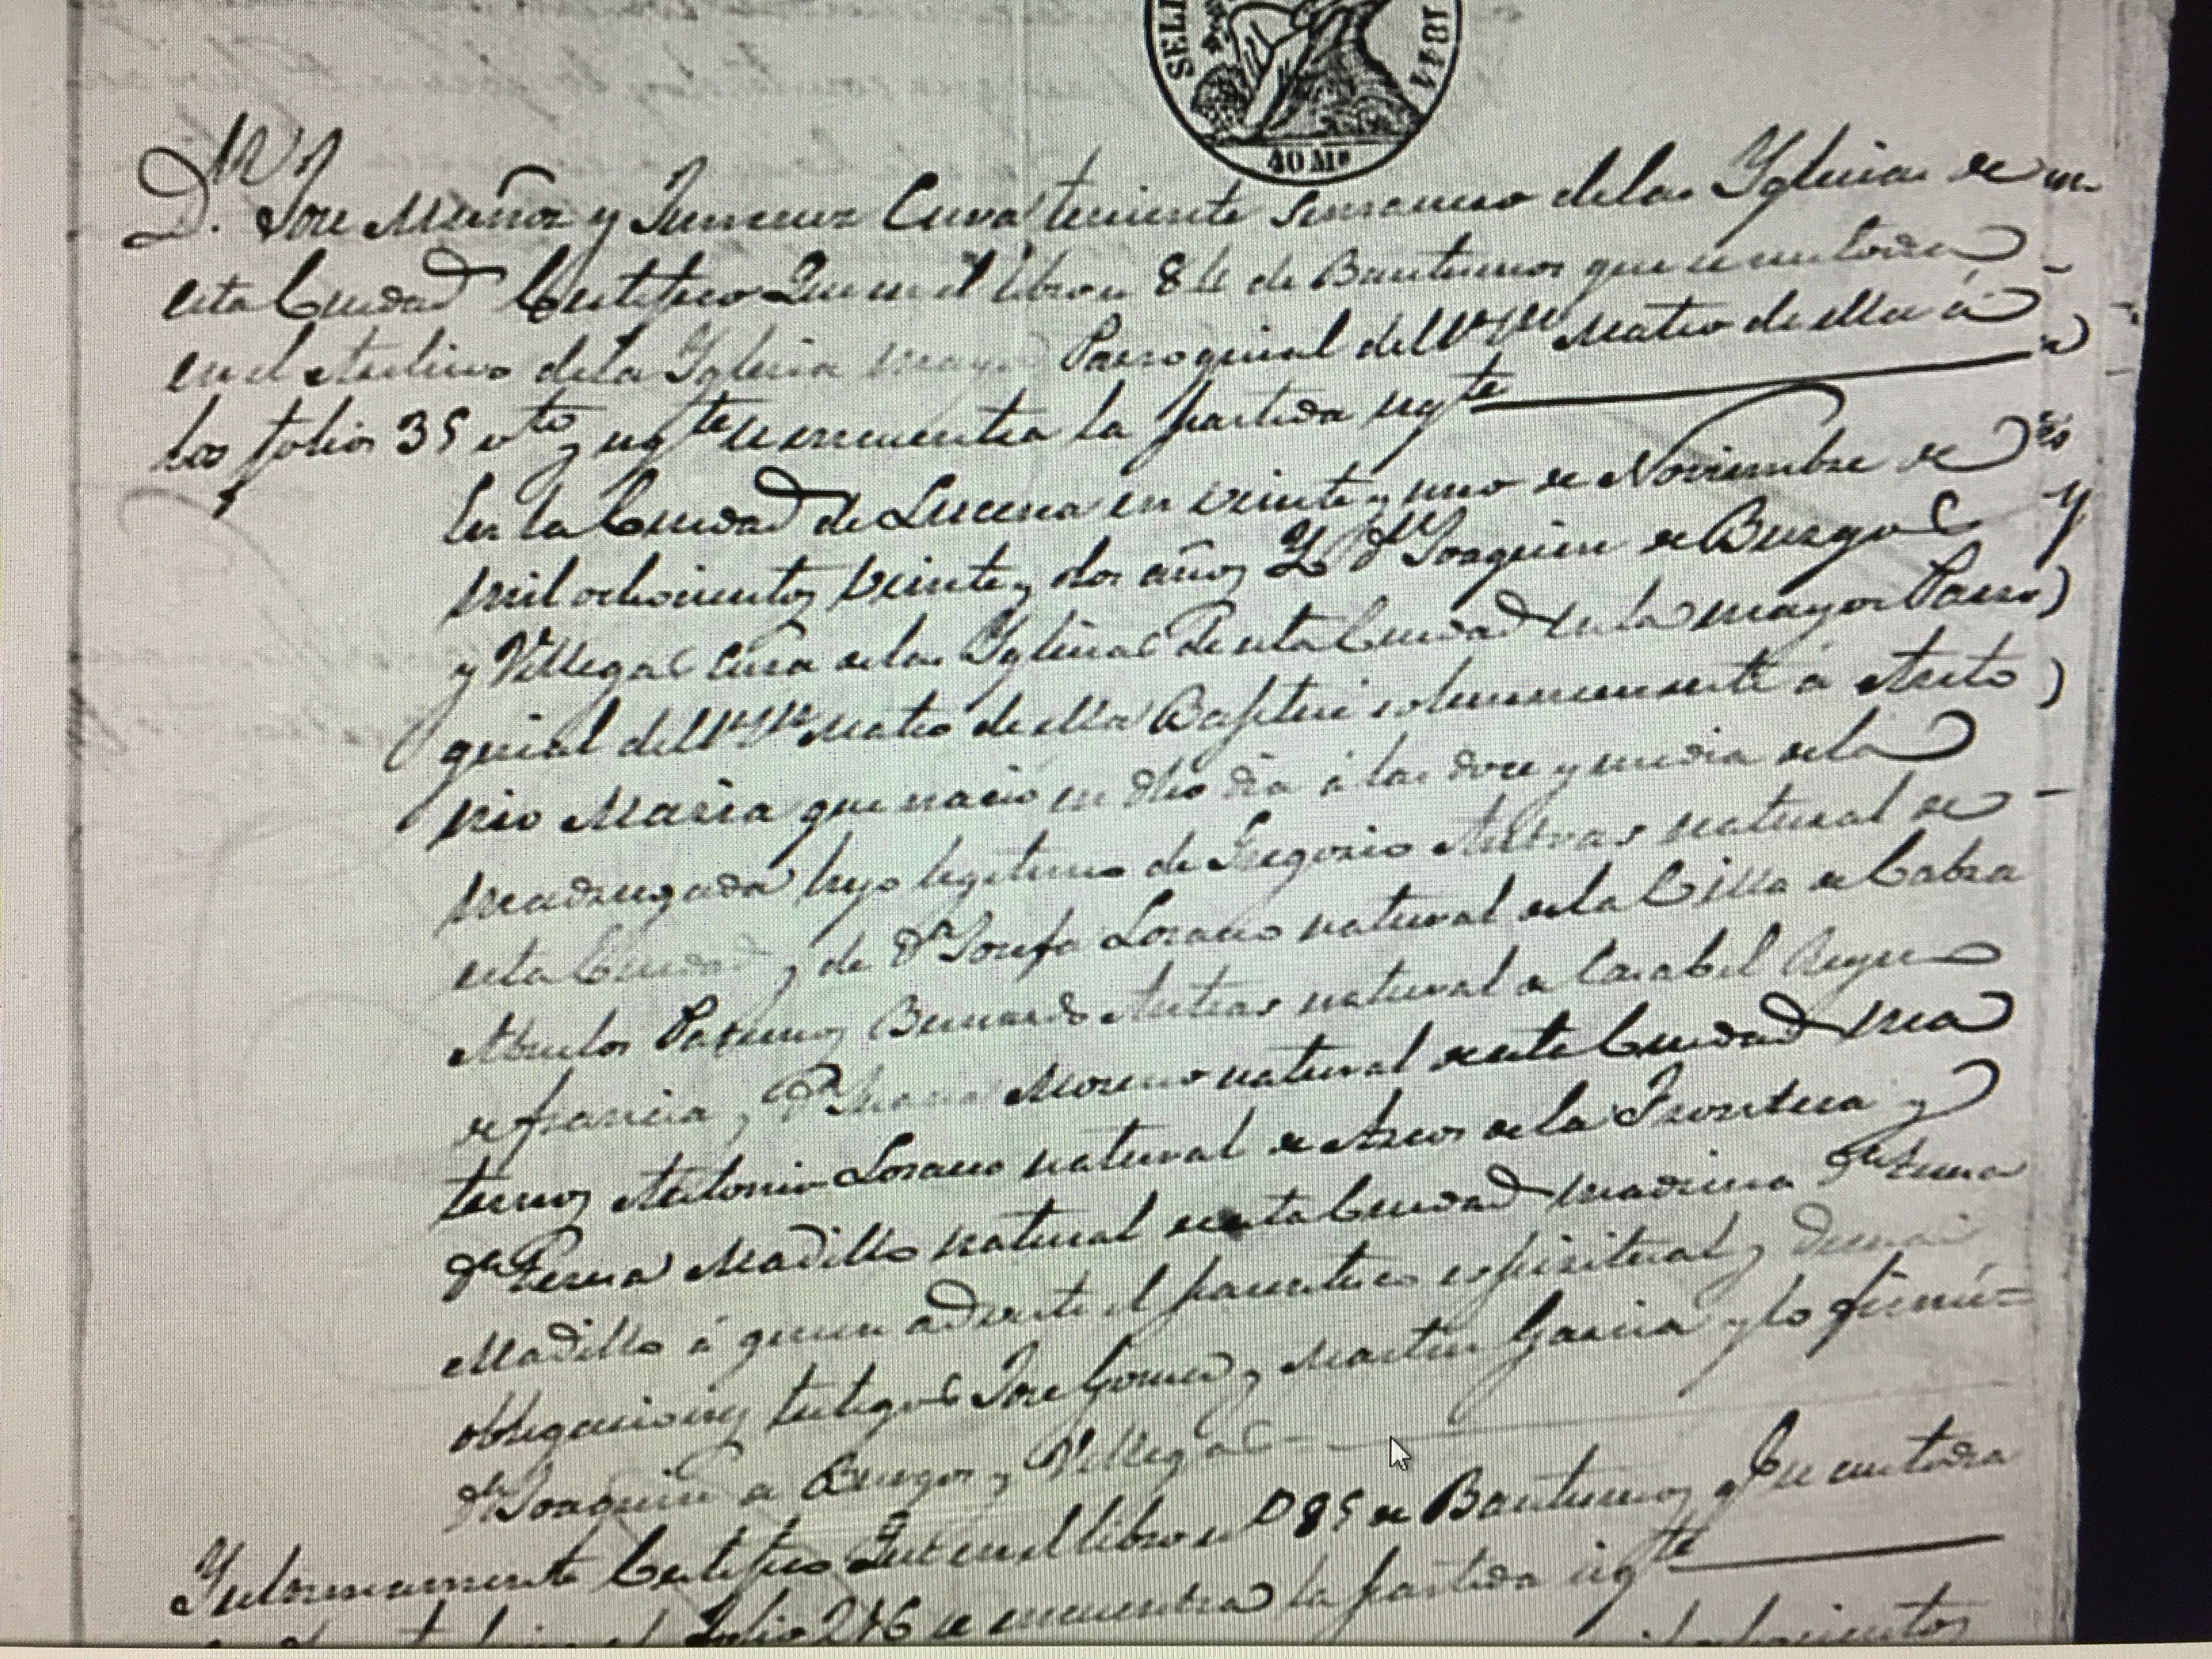 SELL 1844
40 Ms
D. Jose Muñoz y Jimenez Cura teniente de las Yglesias de
esta Ciudad Certifico Que en el libro n 84 de Bautismos que se custodia
en el Archivo de la Yglesia mayor Parroquial del Sr Sn Mateo de ella á
los folios 35 vto y sigte se encuentra la partida sigte
En la Ciudad de Lucena en veinte y uno de Noviembre de
mil ochocientos veinte y dos años Yo Dn Joaquin de Burgos
y Villegas Cura de las Yglesias de esta Ciudad en la mayor Parro
quial del Sr Sn Mateo de ella Baptice solemnemente á Anto
nio Maria que nacio en dho dia á las doce y media de la
madrugada hijo legitimo de Gregorio natural de
esta Ciudad y de Da Josefa Lozano natural de la Villa de Cabra
Abuelos Paternos Bernardo natural de Reyno
de francia y Da Maria Moreno natural de esta Ciudad ma
ternos Antonio Lozano natural de Arcos de la Frontera y
Da Teresa Madillo natural de esta Ciudad madrina Da Teresa
Madillo á quien adverti el parentesco espiritual y demas
obligaciones testigos Jose Gomez y Martin Garcia y lo firmé=
Dn Joaquin de Burgos y Villegas
Ygualmente Certifico Que en el libro no 85 de Bautismos qe se custodia
folio 246 se encuentra la partida sigte